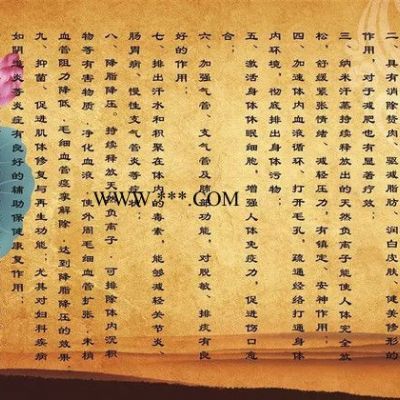 二、具有消除赘肉、驱减脂肪、润白皮肤、健美修形的
作用，对于减肥也有显著疗效；
三、纳米汗蒸持续释放出的天然负离子能使人体完全放
松，舒缓紧张情绪、减轻压力，有镇定、安神作用；
四、加速体内血液循环、打开毛孔，疏通经络打通身体
内环境，彻底排出身体污物
五、激活身体休眠细胞，增强人体免疫力，促进伤口愈
合；
六、加强气管、支气管及肺部功能，对脱敏、排痰有良
好的作用；
七、排出汗水和积聚在体内的毒素，能够减轻关节炎、
肠胃病、慢性支气管炎等病；
八、降脂降压。持续释放天然负离子，可排除体内沉积
物等有害物质，净化血液，使外周毛细血管扩张、末梢
血管阻力降低，毛细血管痉挛解除，达到降脂降压的效果。
九、抑菌、促进肌体修复与再生功能；尤其对妇科疾病
如阴道炎等炎症有良好的辅助保健康复作用；
WWW.***.COM